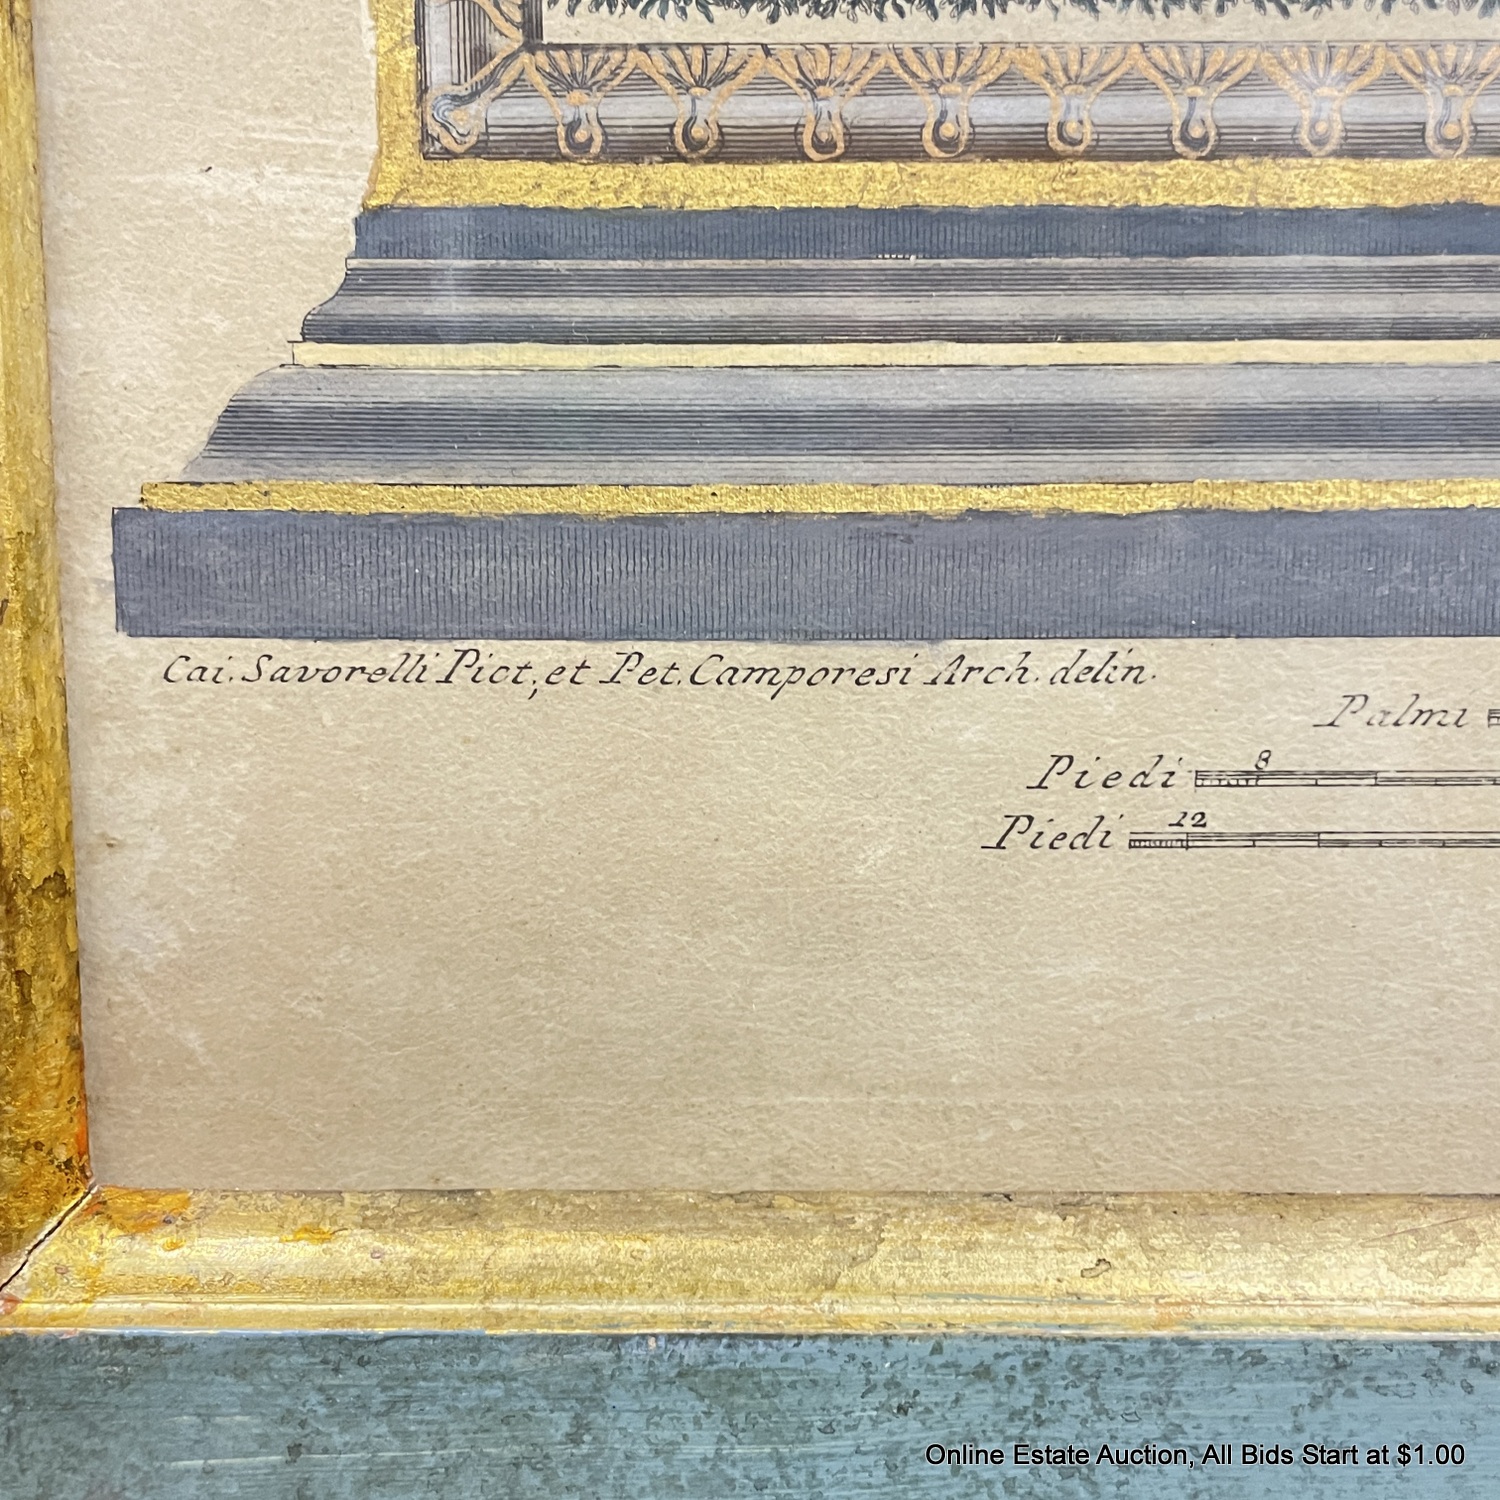 Cai. Savorelli Pict, et Pet. Camporesi Arch. delin.
Palmi
Piedi 8
Piedi 12
Online Estate Auction, All Bids Start at $1.00